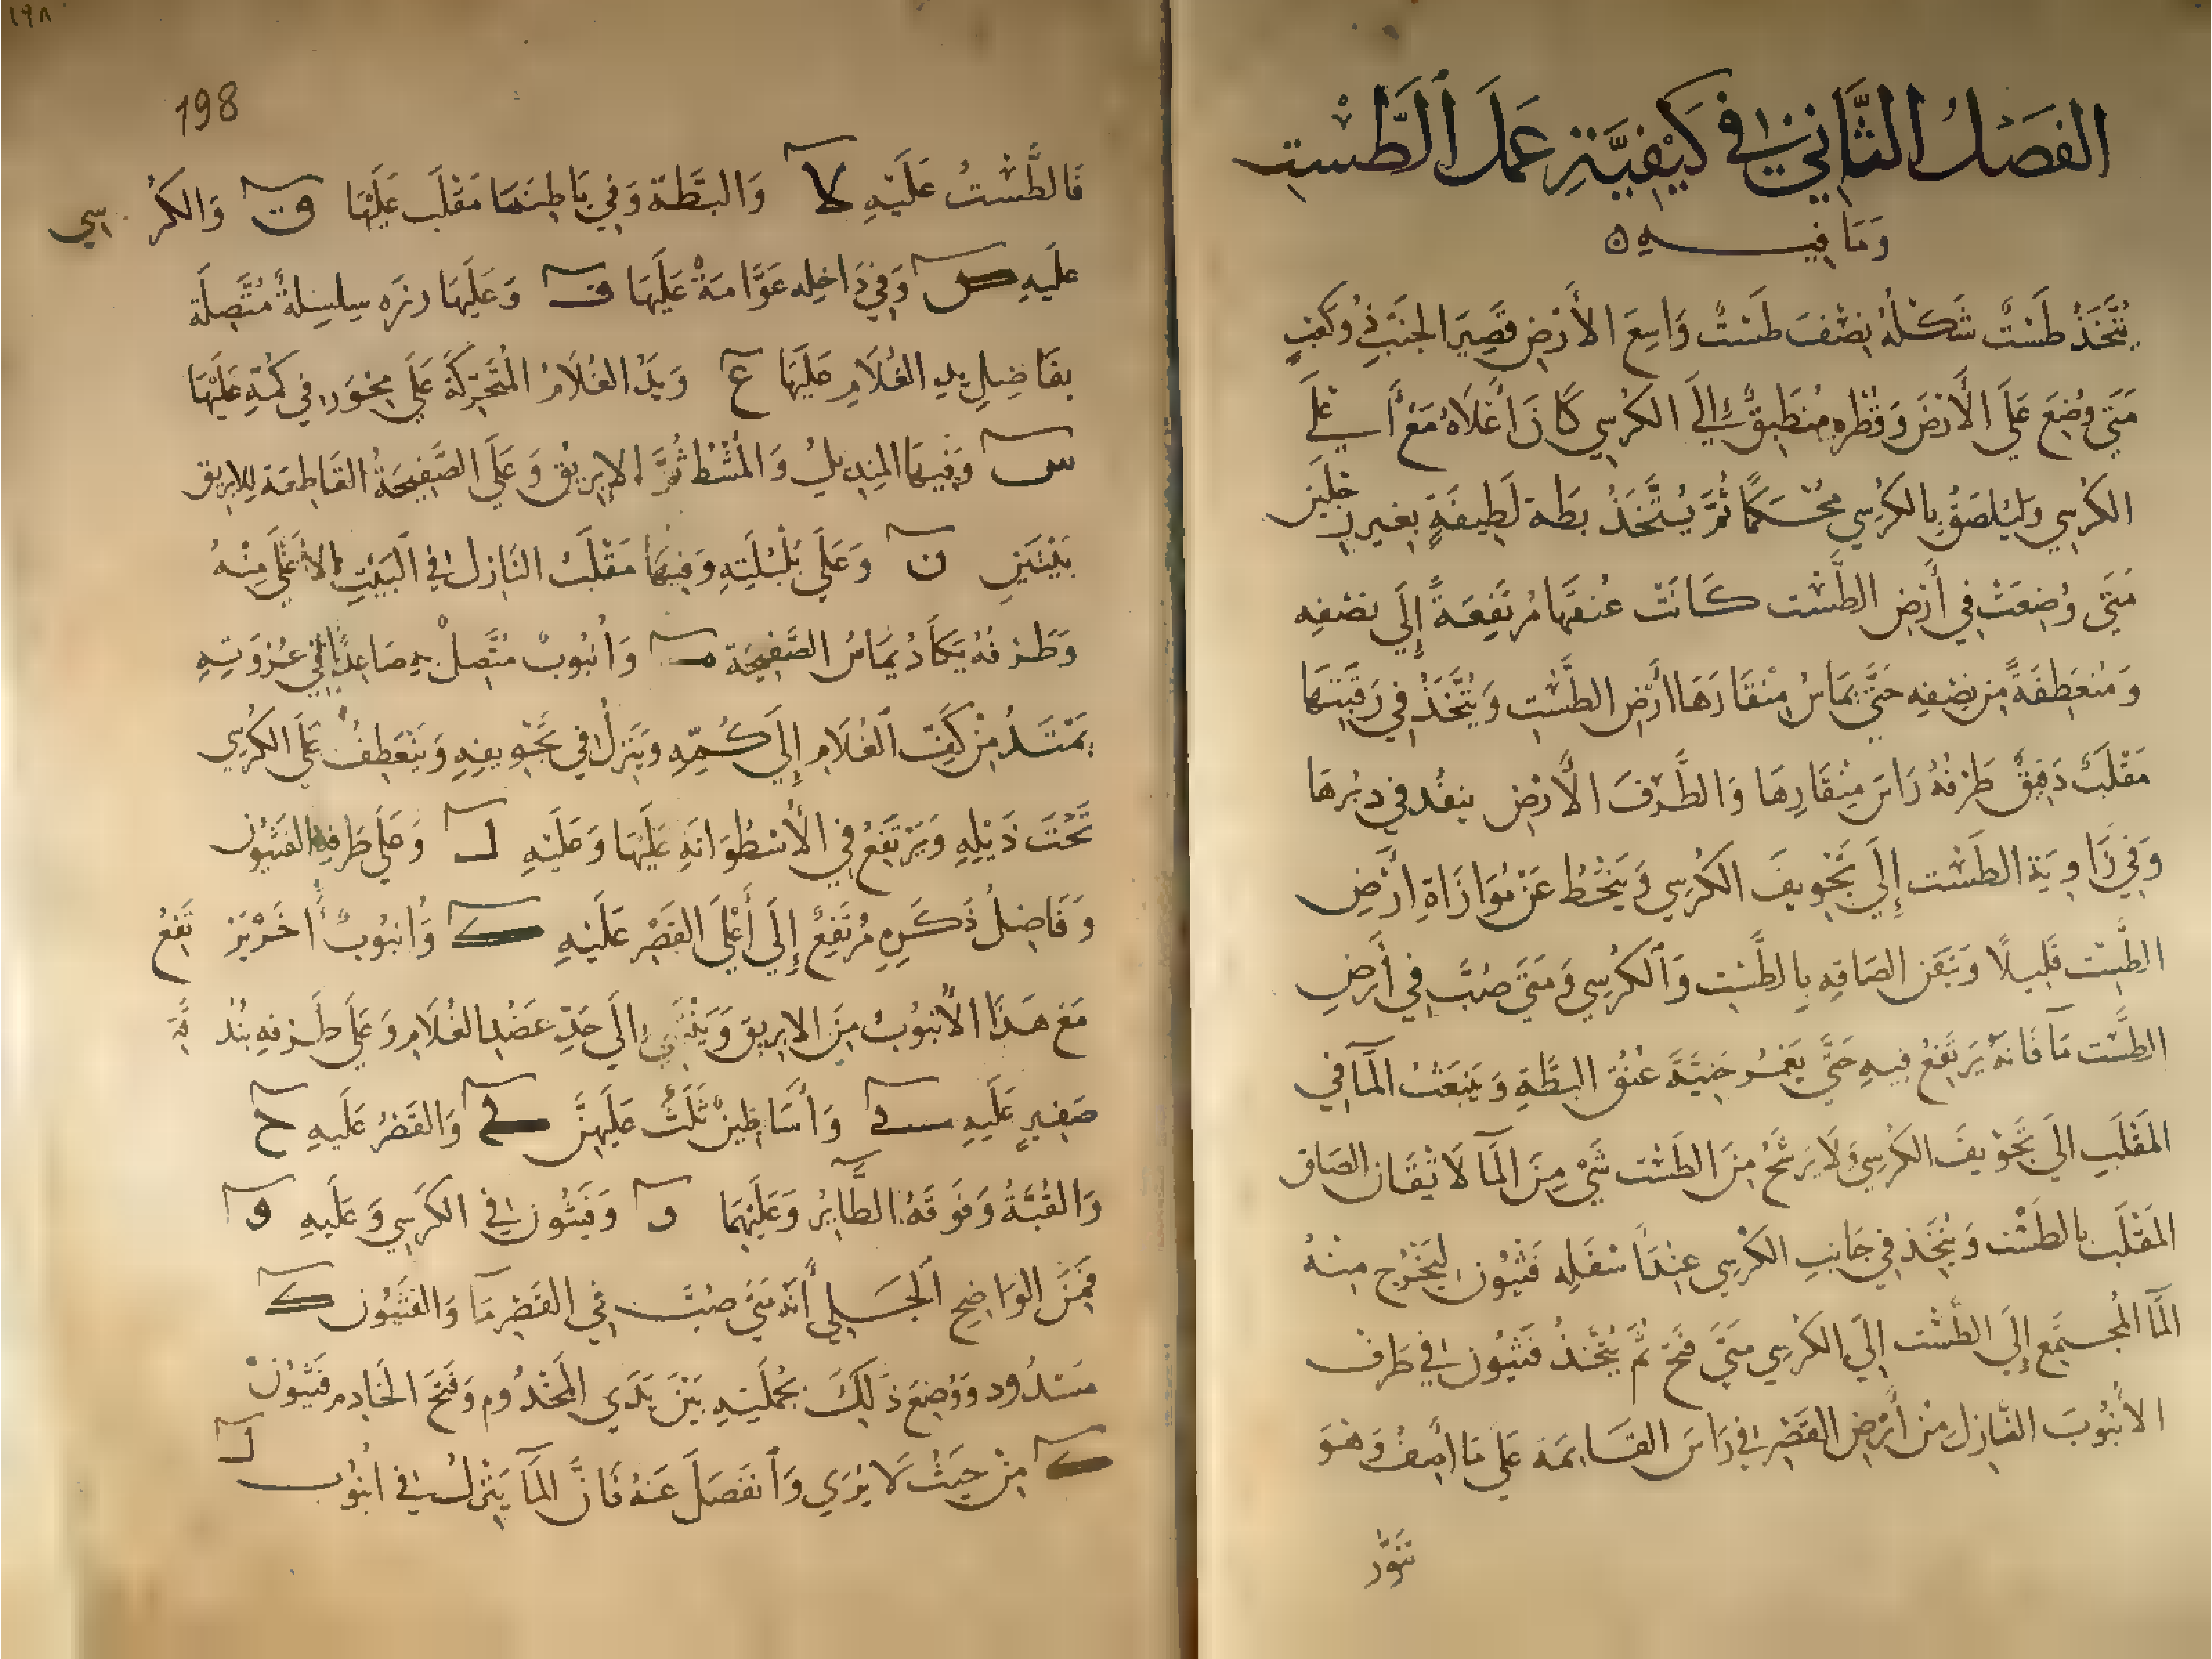 الفَصْلُ الثَّانِي في كَيْفِيَّةِ عَمَلِ الطَّسْتِ
وَمَا فِيـــهِ ه
يُتَّخَذُ طَسْتٌ شَكْلُهُ نِصْفَ طَسْتٌ وَاسِعَ الأَرْضِ قَصِيرَ الجَنْبِ
مَتَى وُضِعَ عَلَى الأَرْضَ وَقُطْرِهِ مُنطَبِقٌ إلَى الكُرْسِي كَانَ أَعْلَاهُ مَعَ أَعْلَى
الكُرْسِي وَليُلصَقْ بِالكُرْسِي مُحْكَمًا ثُمَّ يُتَّخَذُ بَطة لَطِيفَةٍ بغير رجلين
مَتَى وُضِعَتْ فِي أَرْضِ الطَّسْت كَانَتْ عُنقهَا مُرْتَفِعَةً إِلَى نصْفِه
وَمُنْعَطِفَةً مِن نِصْفِه حَتَّى يمَاسُ مِنْقَارَهَا أَرْضِ الطَّسْت وَيُتَّخَذُ فِي رَقَبَتِهَا
مَقْلَبٌ دَقِيقٌ طَرْفُهُ رَاسَ مِنْقَارِهَا وَالطَّرْفَ الأَرْضِ ينفُد في دبُرهَا
وَفِي زَاوِيَة الطَسْت إِلَى تَجْوِيفَ الكُرْسِي وَيَنْحَطُ عَنْ مُوَازَاةِ أَرْضِ
الطَّسْت قَلِيلًا وَيَتقن الصَاقِه بِالطَّسْت وَالكُرْسِي وَمَتَى صُبَّ فِي أَرْضِ
الطَّسْت مَآ فَانهُ يَرتَفِعُ فِيهِ حَتَّى يَغْمُر حَنِيَّةَ عُنُقِ البَطَّةِ وَيَنبَعَثُ المَآ في
المَقْلَبِ الَى تَجْوِيفَ الكُرسِي وَلَا يَرشَحُ مِنَ الطَسْت شَيْ مِنَ المَآ لَاتْقَان الصَاق
المَقْلَب بالطَسْت وَيُتَّخَذ في جَانِبِ الكُرْسِي عِنْدَ أسْفَلِه فَثيُون ليَخْرُج مِنْهُ
المَآ المُجتَمَع إِلَى الطَّسْت إِلَى الكُرْسِي مَتَى فُتحَ ثُمَّ يُتَّخَذُ فَثيُون في طَرف
الأُنْبُوبَ النَّازِل مِنْ أَرْضِ القَصْر في رَاسَ القَايمَة عَلَى مَا أَصِفُ وَهُوَ
198
١٩٨
فَالطَّسْتُ عَلَيْهِ لا وَالبَطَّة وَفِي بَاطِنهَا مَقْلَب عَلَيْهَا ق وَالكُرْسي
عَلَيهِ ص وَفِي دَاخِلِه عَوَّامَةٌ عَلَيهَا ف وَعَلَيهَا رزه سِلسِلةٌ مُتَّصِلَة
بفَاضِلِ يد الغُلَامِ عَليهَا ع وَيَدُ الغُلَامُ المُتَحَرّكَة عَلَى مِحْوَر في كُمّهِ عَلَيْهَا
س وَفِيهَا المِنديلُ وَالمُشْطُ ثُمَّ الابريق وَعَلَى الصَّفِيحَةُ القَاطِعَة لِلابريق
بَيْتَيْنِ ن وَعَلَى بُلْبُلَتِهِ وَفِيهَا مَقْلَبُ النَازل في البَيْتِ الأَعْلَى مِنْهُ
وَطَرْفُهُ يَكَادُ يُمَاسُ الصَّفِيحَة م وَأنبُوبٌ مُتَّصلٌ بِهِ صَاعِدًا في عُرْوَتِهِ
يَمْتَدُ مِنْ كَفِّ الغُلَامِ إِلَى كُمِّهِ وَيَنزلُ في تَجْوِيفِهِ وَيَنْعَطِفُ عَلَى الكُرْسِي
تَحْتَ ذَيْلِهِ وَيَرْتَفِعُ فِي الأُسْطُوَانَةِ عَلَيْهَا وَعَلَيْهِ ل وَعَلَى طَرفِهِ الفَثيُون
وَفَاضِلُ ذَكَرِهِ مُرْتَفِعٌ إِلَى أَعْلَى القَصْرِ عَلَيْهِ ك وَأنبُوبٌ أخَر يَرْتَفِعُ
مَعَ هَذَا الأُنْبُوبُ مِنَ الابريقِ وَيَنْثَنِي إلَى حَدِّ عَضُدِ الغُلَامِ وَعَلَى طَرفِهِ بُندُقَة
صَفيرٍ عَلَيهِ ي وَأَسَاطِينٌ ثَلَثٌ عَليهنَّ ط وَالقَصْرُ عَلَيهِ ح
وَالقُبَّةُ وَفَوقَهُ الطَّايِرُ وَعَلَيْهِمَا و وَفَثيُون في الكُرسِي وَعَلَيهِ و
فَمِنَ الوَاضِحِ الجَلي أَنَّهُ مَتَى صُبَّ في القَصْرِ مَآ وَالفَثيُون ك
مَسدُود وَوُضِعَ ذَلِكَ بجُمْلَتِهِ بَيْنَ يَدَي المَخْدُوم وَفَتَحَ الخَادِم فَثيُون
ك مِنْ حَيْثُ لَا يُرَي وَانفَصَلَ عَنْهُ فَانَّ المَآ يَنْزلُ في أنبُوب ل